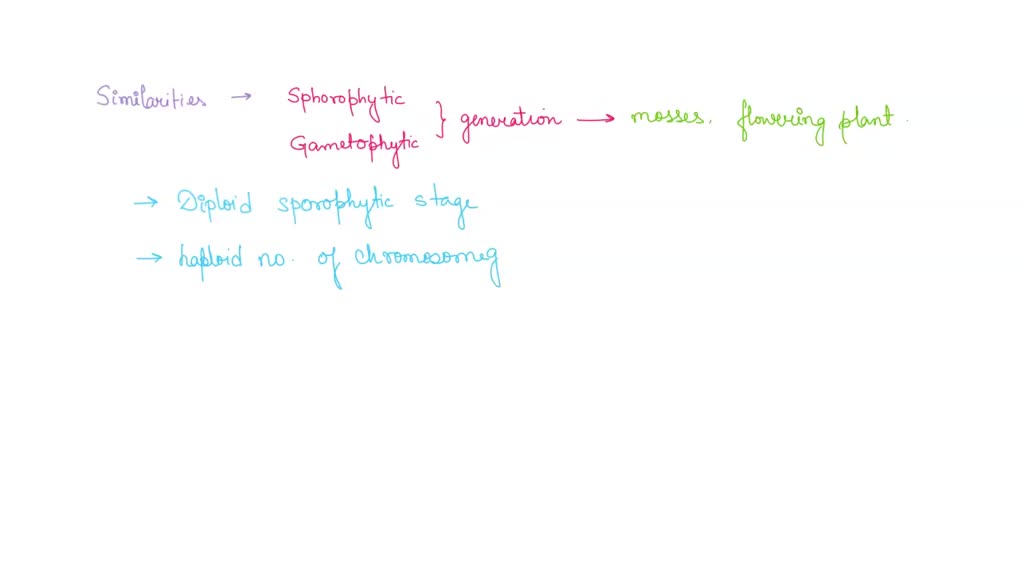 Similarities → Sphorophytic
Gametophytic } generation → mosses, flowering plant.
→ Diploid sporophytic stage
→ haploid no. of chromosomeg